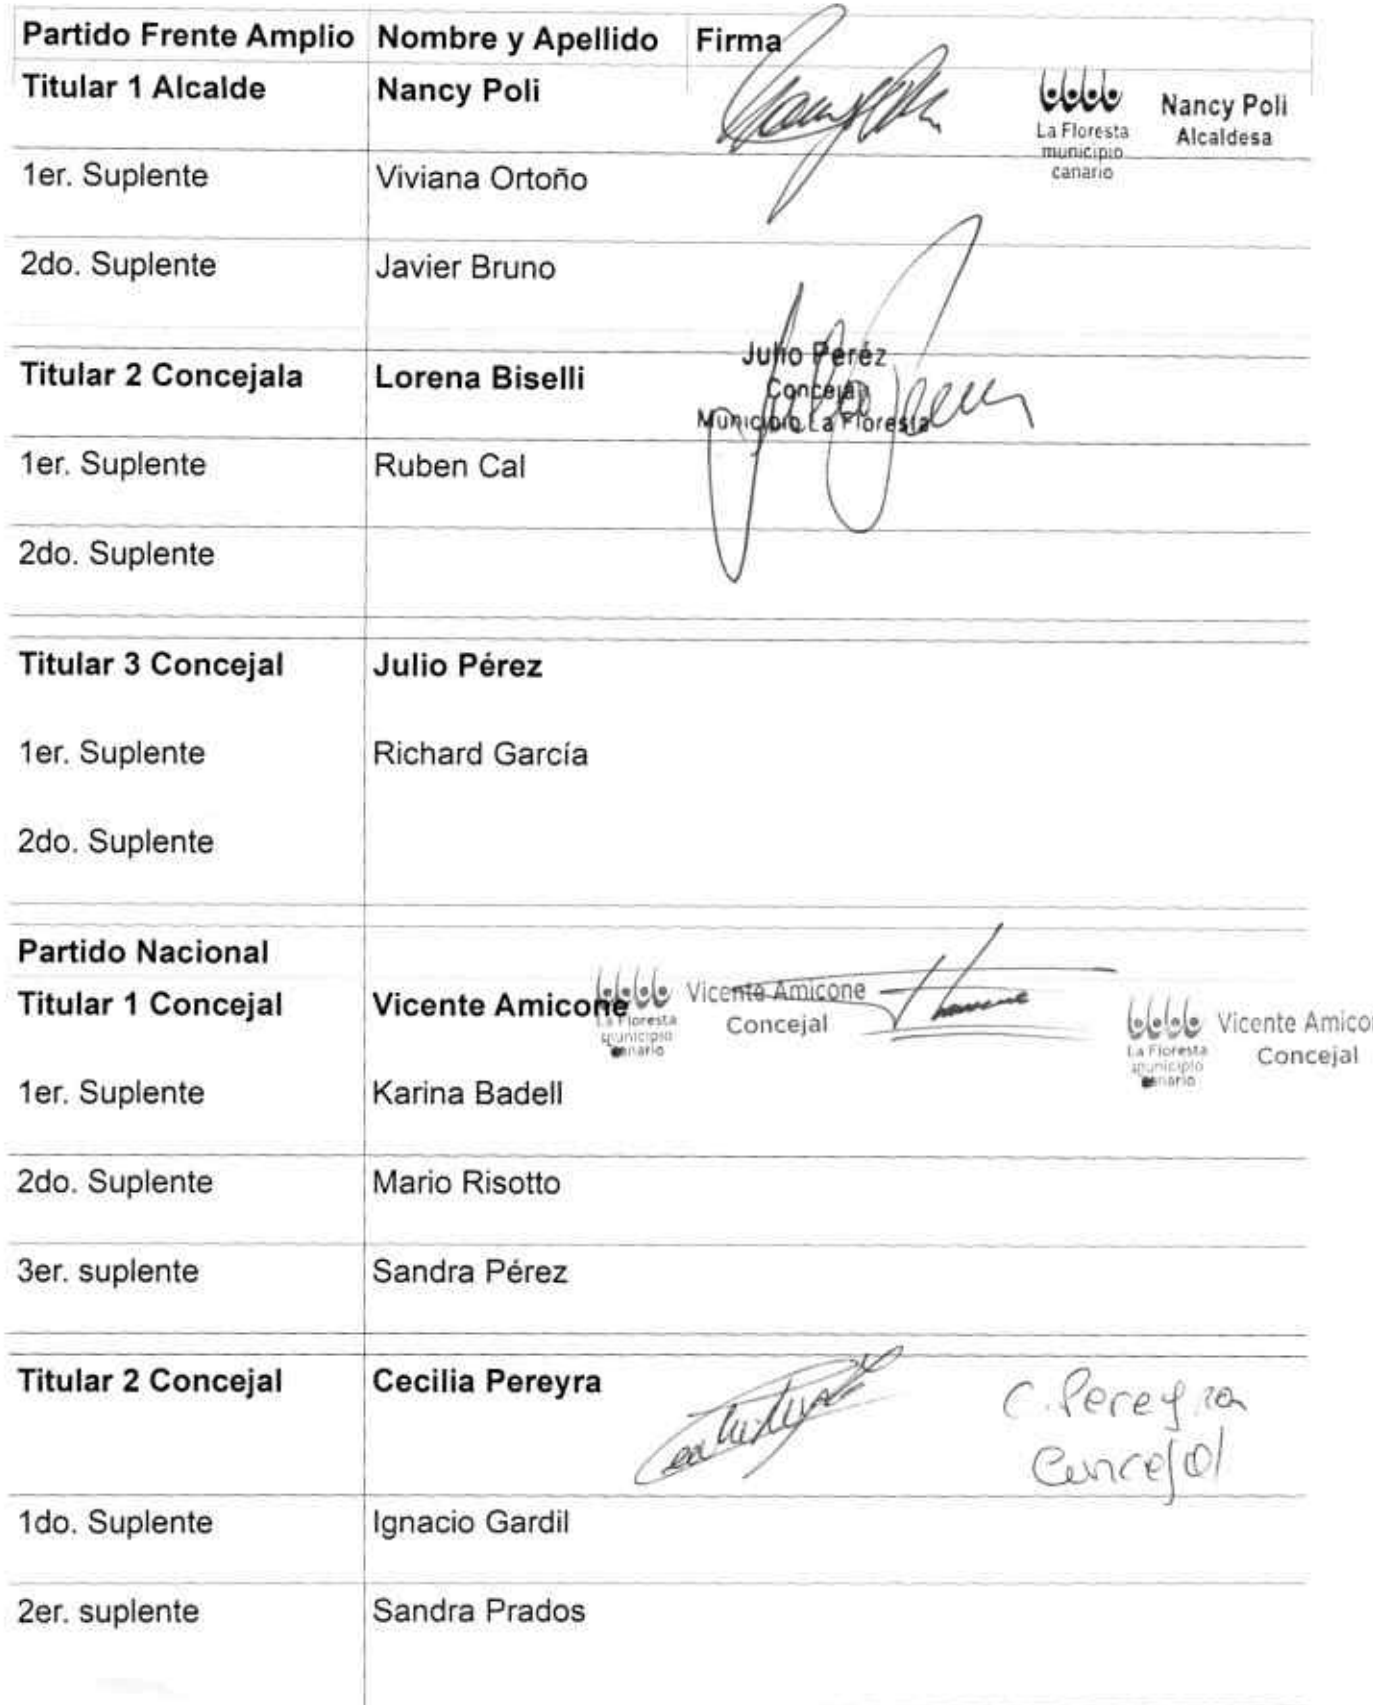 Partido Frente Amplio Nombre y Apellido Firma
Titular 1 Alcalde Nancy Poli
La Floresta municipio canario
Nancy Poli
Alcaldesa
1er. Suplente Viviana Ortoño
2do. Suplente Javier Bruno
Titular 2 Concejala Lorena Biselli
Julio Peréz
Concejal
Municipio La Floresta
1er. Suplente Ruben Cal
2do. Suplente
Titular 3 Concejal Julio Pérez
1er. Suplente Richard García
2do. Suplente
Partido Nacional
Titular 1 Concejal Vicente Amicone
La Floresta municipio canario
Vicente Amicone
Concejal
La Floresta municipio canario
Vicente Amico
Concejal
1er. Suplente Karina Badell
2do. Suplente Mario Risotto
3er. suplente Sandra Pérez
Titular 2 Concejal Cecilia Pereyra
C. Pereyra
Concejal
1do. Suplente Ignacio Gardil
2er. suplente Sandra Prados